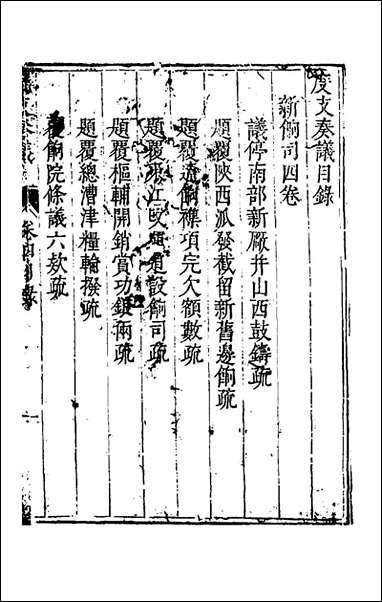 度支奏議目錄
新餉司四卷
議停南部新厰并山西鼓鑄疏
題覆陝西派發截留新舊邊餉疏
題覆遼餉襍項完欠額數疏
題覆東江改道設餉司疏
題覆樞輔開銷賞功銀兩疏
題覆總漕津糧輪撥疏
覆餉院條議六欵疏
度支奏議
卷四目錄
一